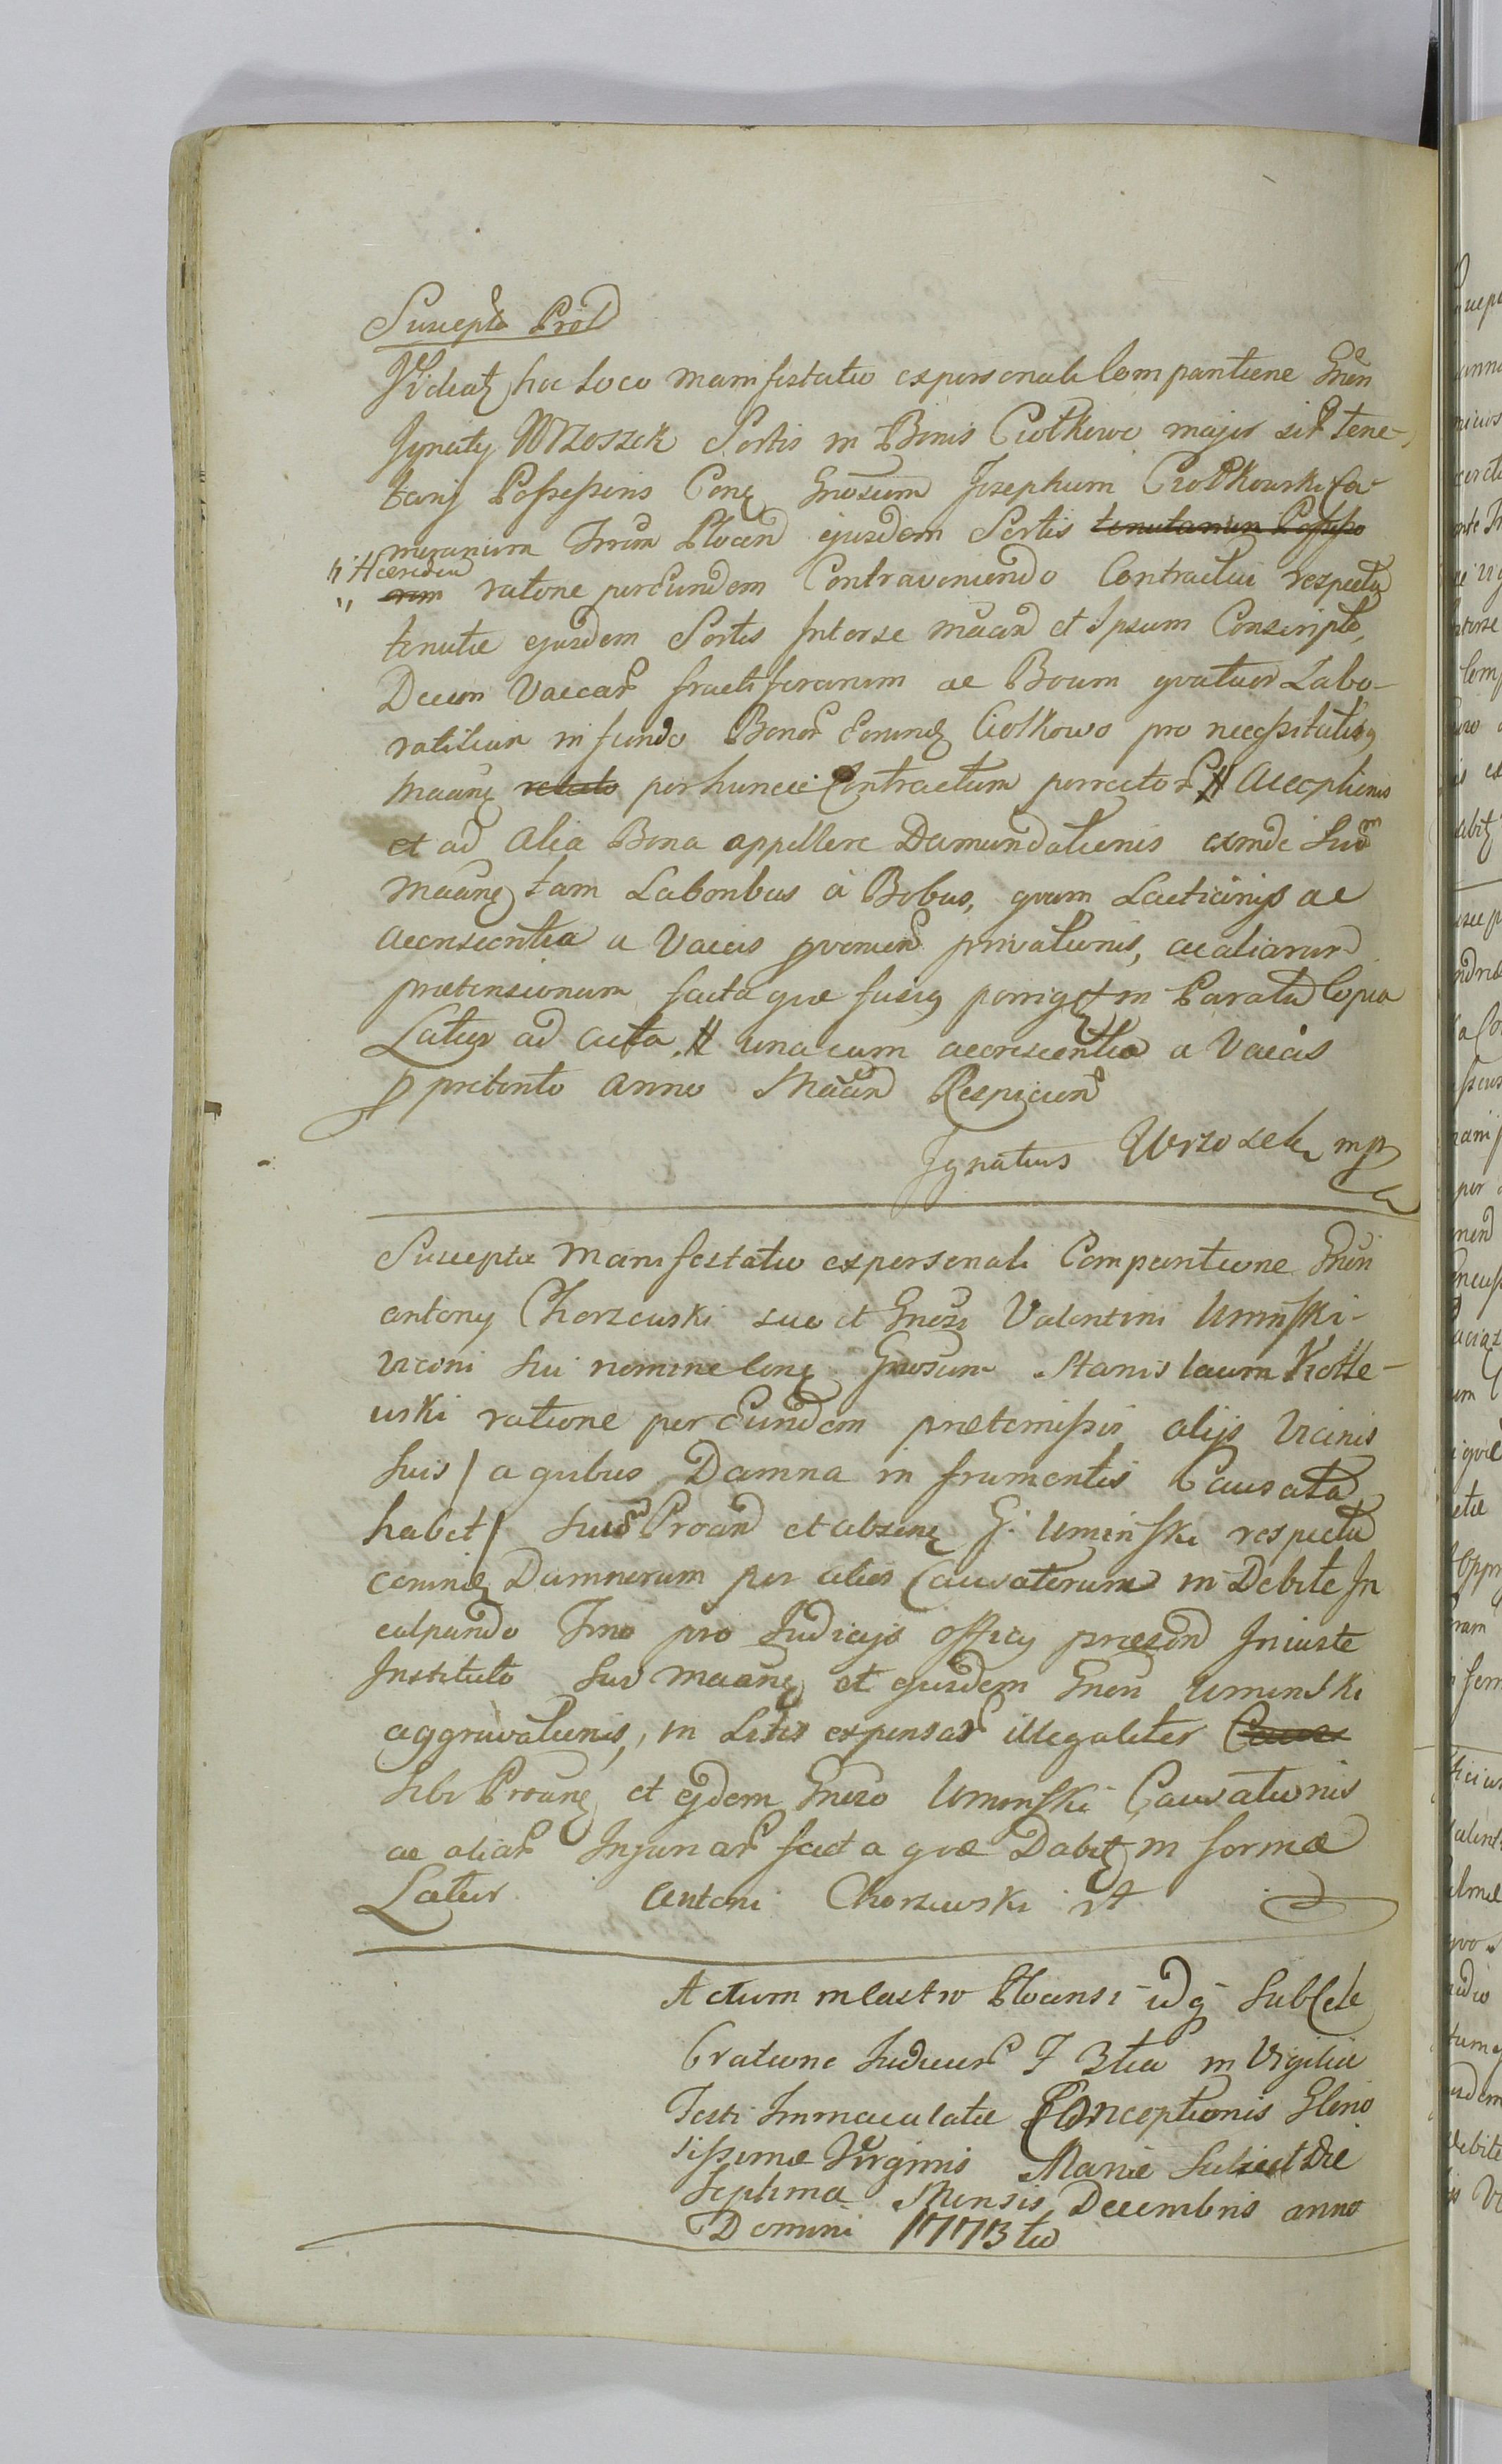 Suscepta Prot
Videatz hoc loco manifestatio expersonali Comparitione Gnēn
Ignatij Wrzoszek Sortis in Bonis Ciołkowo major sit tene-
tarij Possessoris Conz Gnosum Josephum Ciołkowski ca-
merarium Trrūm Plocen ejusdem Sortis tenutarium Possesso
"Hæredem
" rem ratione per Eundem Contraveniendo Contractui respectu
tenutæ ejusdem Sortis Inter se mācan et Ipsum Conscripto,
Decem Vaccar fructiferarum ac Boum quatuor Labo-
ratilium in fundo Bonor Eorundz Ciołkowo pro necessitatibq
mācanz relicto per huncce Contractum porrector # Acceptionis
et ad alia Bona appellere Demandationis exinde Suo
mācanz tam Laboribus à Bobus, quam Lacticinijs ac
accrescentia a Vaccis provenien privationis, ac aliarum
prætensionum facta quæ fusiq porrigetz in Parata Copia
Latius ad acta. # una cum accrescentia a Vaccis
p pretento anno Mācan Respicien
Ignatius Wrzosek mp
Suscepta manifestatio expersonali Comparitione Gnēn
antonij Chorzewski suo et Gnosi Valentini Umiński
Viconi Sui nomine Conz Gnosum Stanislaum Kotle-
wski ratione per Eundem prætermissis alijs Vicinis
Suis / a quibus Damna in frumentis Causata
habet / Suo Proān et absenz G. Umiński respectu
eorundz Damnorum per alios Causatorum in Debite In
culpando Imo pro Judicijs officij præsen Iniuste
Instituto Suo mācanz et ejusdem Gnēn Umiński
aggravationis, in Litis expensas illegaliter Caus
Sibi Proānz et ejdem Gnoso Umiński Causationis
ac aliar Injuriar facta quæ Dabitz in forma
Latius Antoni Chorzewski mp
Actum in Castro Plocensi idq Sub Cele
bratione Judicior F 3tia in Vigilia
Festi Immaculatæ Conceptionis Glorio
sissimæ Virginis Mariæ Scilicet Die
Septima Mensis Decembris anno
Domini 1773tio